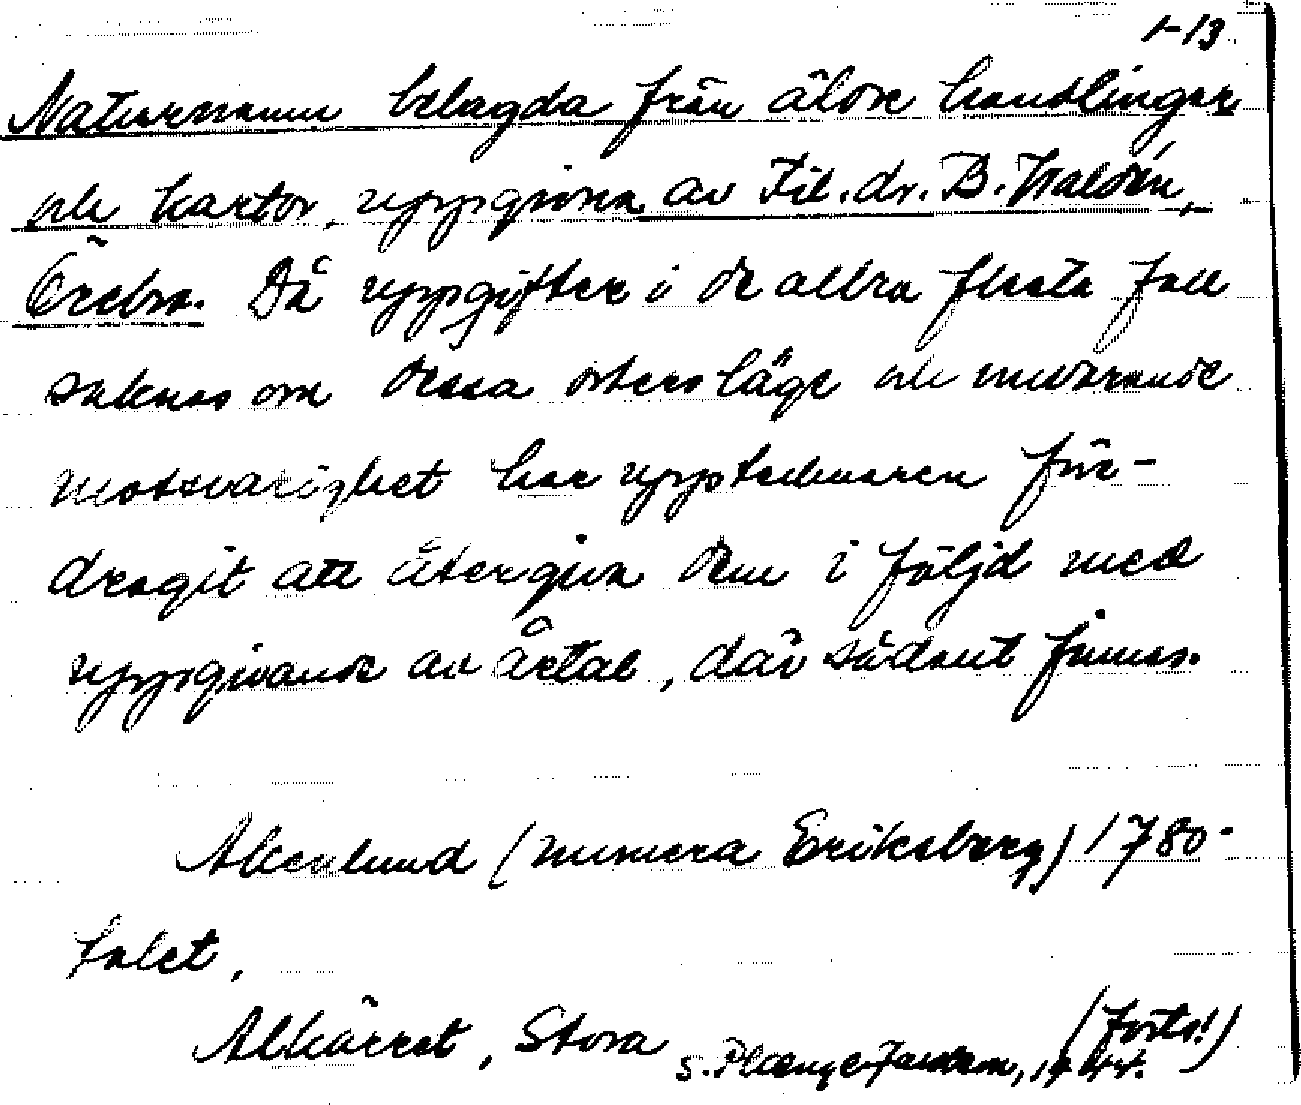 1-13
Naturnamn belagda från äldre handlingar
och kartor, uppgivna av Fil. dr. B. Waldén,
Örebro. Då uppgifter i de allra flesta fall
saknas om dessa orters läge och nuvarande
motsvarighet har upptecknaren före-
dragit att återgiva dem i följd med
uppgivande av årtal, där sådant finnes.
Alkenlund (numera Eriksberg) 1780-
talet.
Alkärret, Stora
(Forts!)
S. 1944.